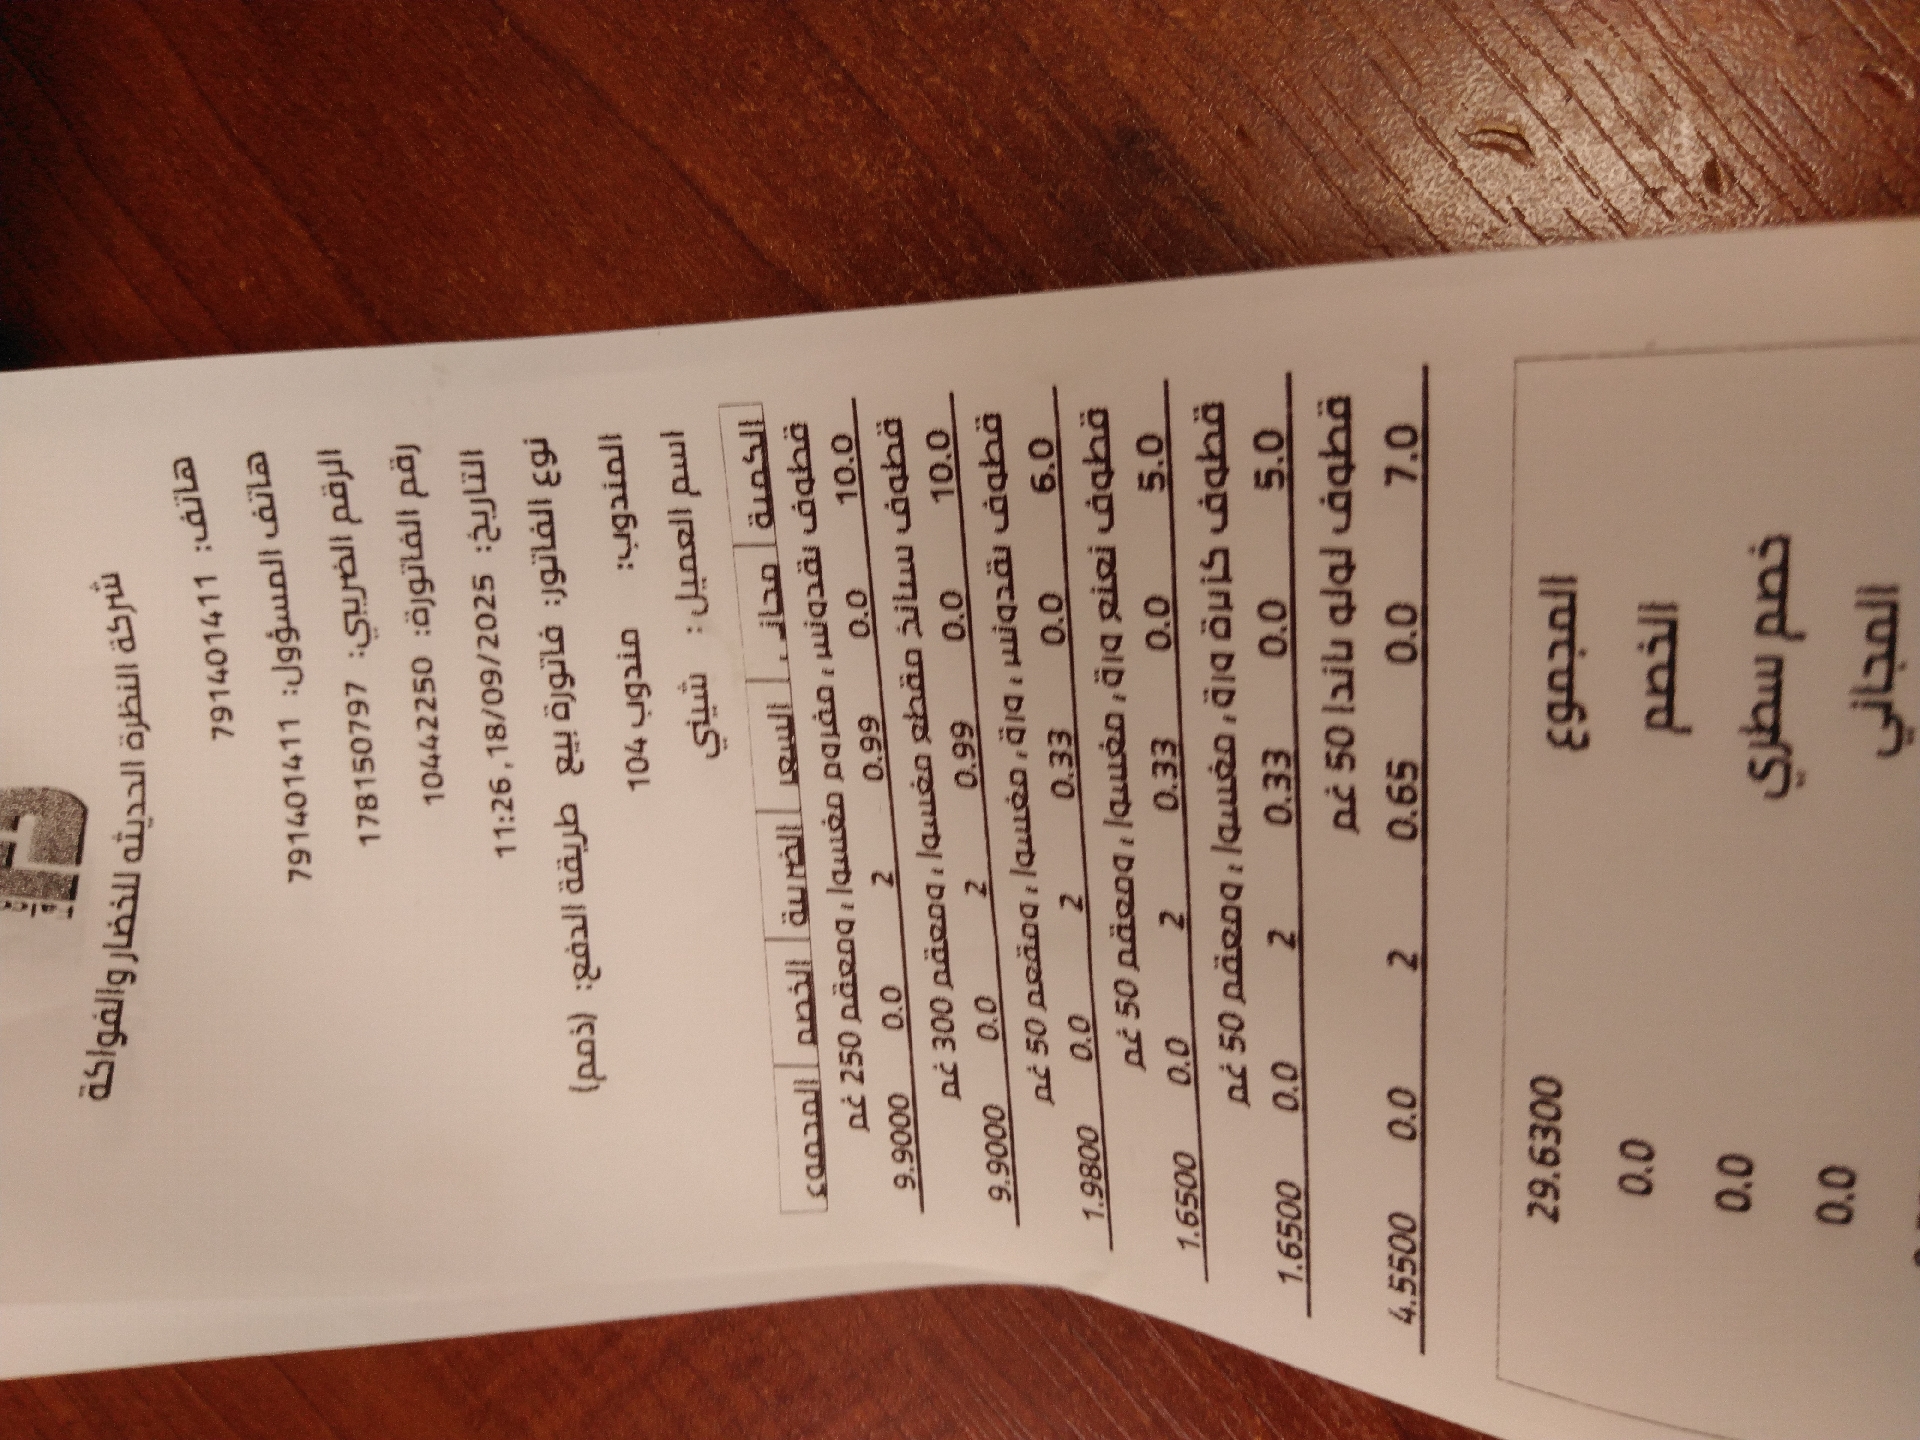 شركة النظرة الحديثه للخضار والفواكة
هاتف: 791401411
هاتف المسؤول: 791401411
الرقم الضريبي: 178150797
رقم الفاتورة: 10442250
التاريخ: 11:26 ,18/09/2025
نوع الفاتور: فاتورة بيع طريقة الدفع: (ذمم)
المندوب: مندوب 104
اسم العميل : شيني
الكمية مجاني السعر الضريبة الخصم المجموع
قطوف بقدونس، مفروم مغسول، ومعقم 250 غم
10.0 0.0 0.99 2 0.0 9.9000
قطوف سبانخ مقطع مغسول، ومعقم 300 غم
10.0 0.0 0.99 2 0.0 9.9000
قطوف بقدونس، ورق، مغسول، ومعقم 50 غم
6.0 0.0 0.33 2 0.0 1.9800
قطوف نعنع ورق، مغسول، ومعقم 50 غم
5.0 0.0 0.33 2 0.0 1.6500
قطوف كزبرة ورق، مغسول، ومعقم 50 غم
5.0 0.0 0.33 2 0.0 1.6500
قطوف لولو باندا 50 غم
7.0 0.0 0.65 2 0.0 4.5500
المجموع 29.6300
الخصم 0.0
خصم سطري 0.0
المجاني 0.0